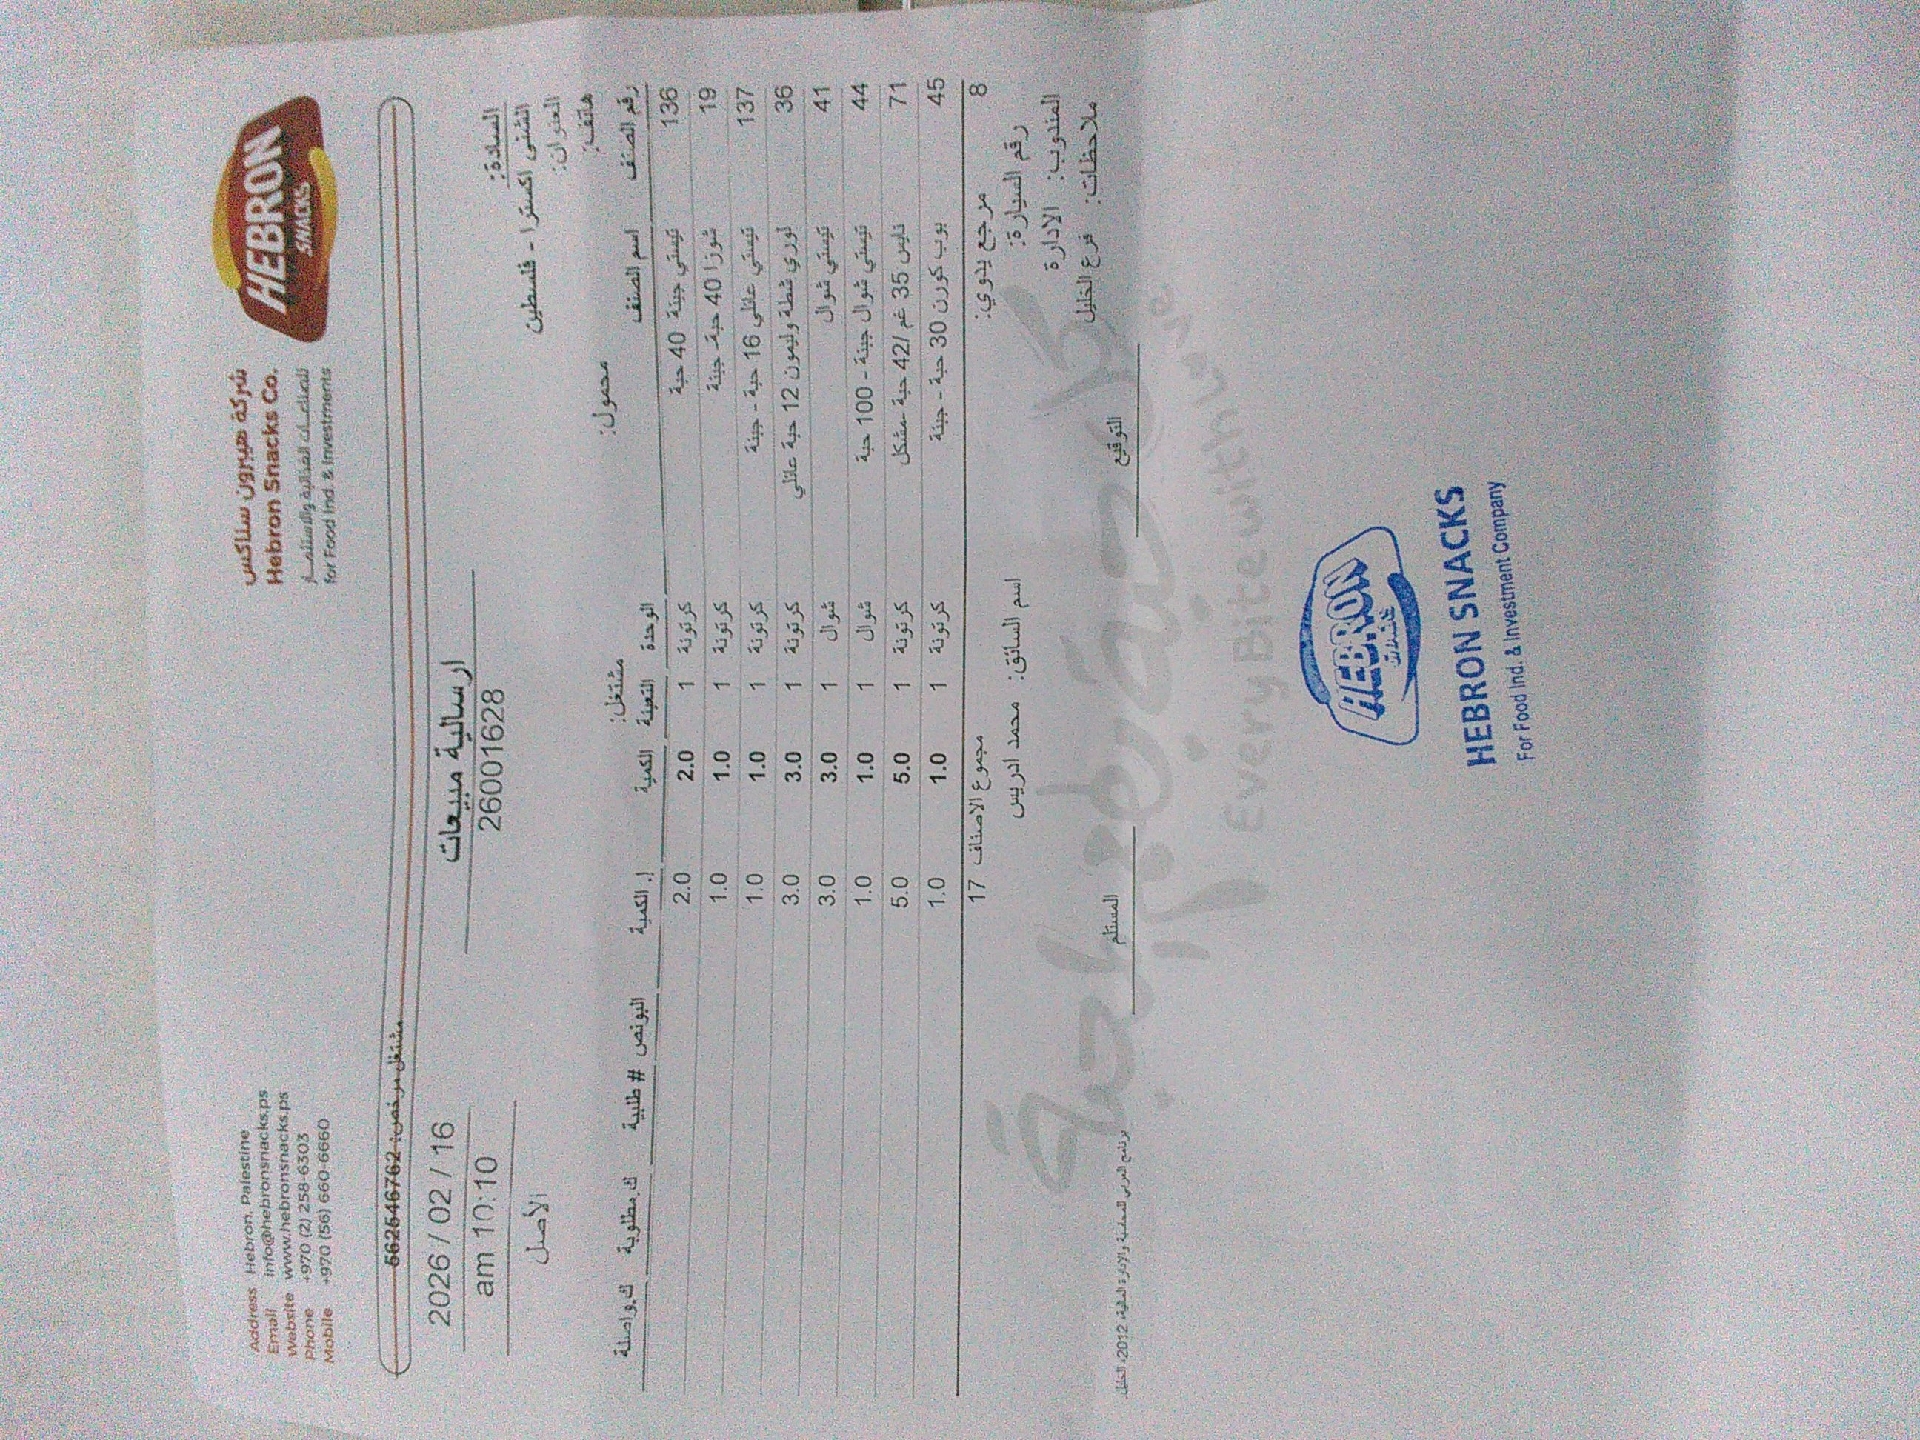 HEBRON
SNACKS
شركة هيبرون سناكس
Hebron Snacks Co.
للصناعات الغذائية والاستثمار
for Food Ind. & Investments
Address Hebron, Palestine
Email info@hebronsnacks.ps
Website www.hebronsnacks.ps
Phone +970 (2) 258-6303
Mobile +970 (56) 660-6660
مشتغل مرخص: 562546762
ارسالية مبيعات
26001628
2026 / 02 / 16
am 10:10
الأصل
السادة:
الشني اكسترا - فلسطين
العنوان:
هاتف: محمول: مشتغل:
رقم الصنف اسم الصنف الوحدة التعبئة الكمية إ. الكمية البونص # طلبية ك.مطلوبة ك.واصلة
136 تيستي جبنة 40 حبة كرتونة 1 2.0 2.0
19 شورزا 40 حبة- جبنة كرتونة 1 1.0 1.0
137 تيستي عائلي 16 حبة - جبنة كرتونة 1 1.0 1.0
36 لوري شطة وليمون 12 حبة عائلي كرتونة 1 3.0 3.0
41 تيستي شوال شوال 1 3.0 3.0
44 تيستي شوال جبنة - 100 حبة شوال 1 1.0 1.0
71 تايس 35 غم /42 حبة -مشكل كرتونة 1 5.0 5.0
45 بوب كورن 30 حبة - جبنة كرتونة 1 1.0 1.0
8 مرجع يدوي: مجموع الاصناف 17
رقم السيارة: اسم السائق: محمد ادريس
المندوب: الادارة
ملاحظات: فرع الخليل
التوقيع
المستلم
برنامج العربي للمحاسبة والادارة المالية، 2012، الخليل
Every Bite with Love
HEBRON
HEBRON SNACKS
For Food Ind. & Investment Company